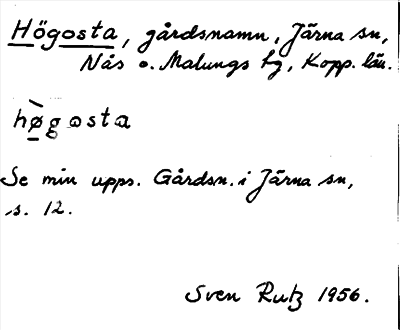 Högosta, gårdsnamn, Järna sn,
Nås o. Malungs tg, Kopp. län.
hø̀gosta
Se min upps. Gårdsn. i Järna sn,
s. 12.
Sven Rutz 1956.